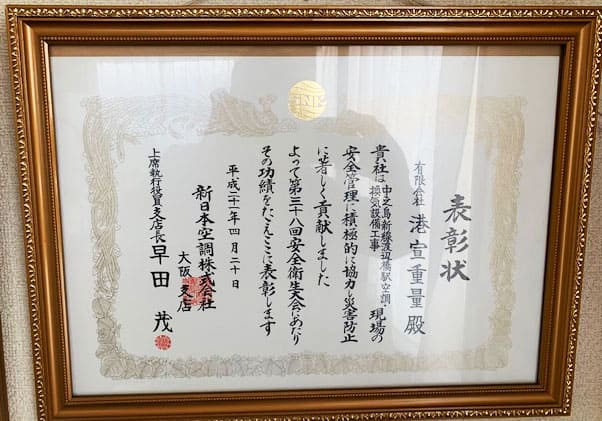 表彰状
有限会社 港宣重量 殿
貴社は中之島新線渡辺橋駅空調・換気設備工事現場の
安全管理に積極的に協力し災害防止
に著しく貢献しました
よって第三十八回安全衛生大会にあたり
その功績をたたえここに表彰します
平成二十一年四月二十日
新日本空調株式会社
大阪支店
上席執行役員支店長 早田 茂
SNK